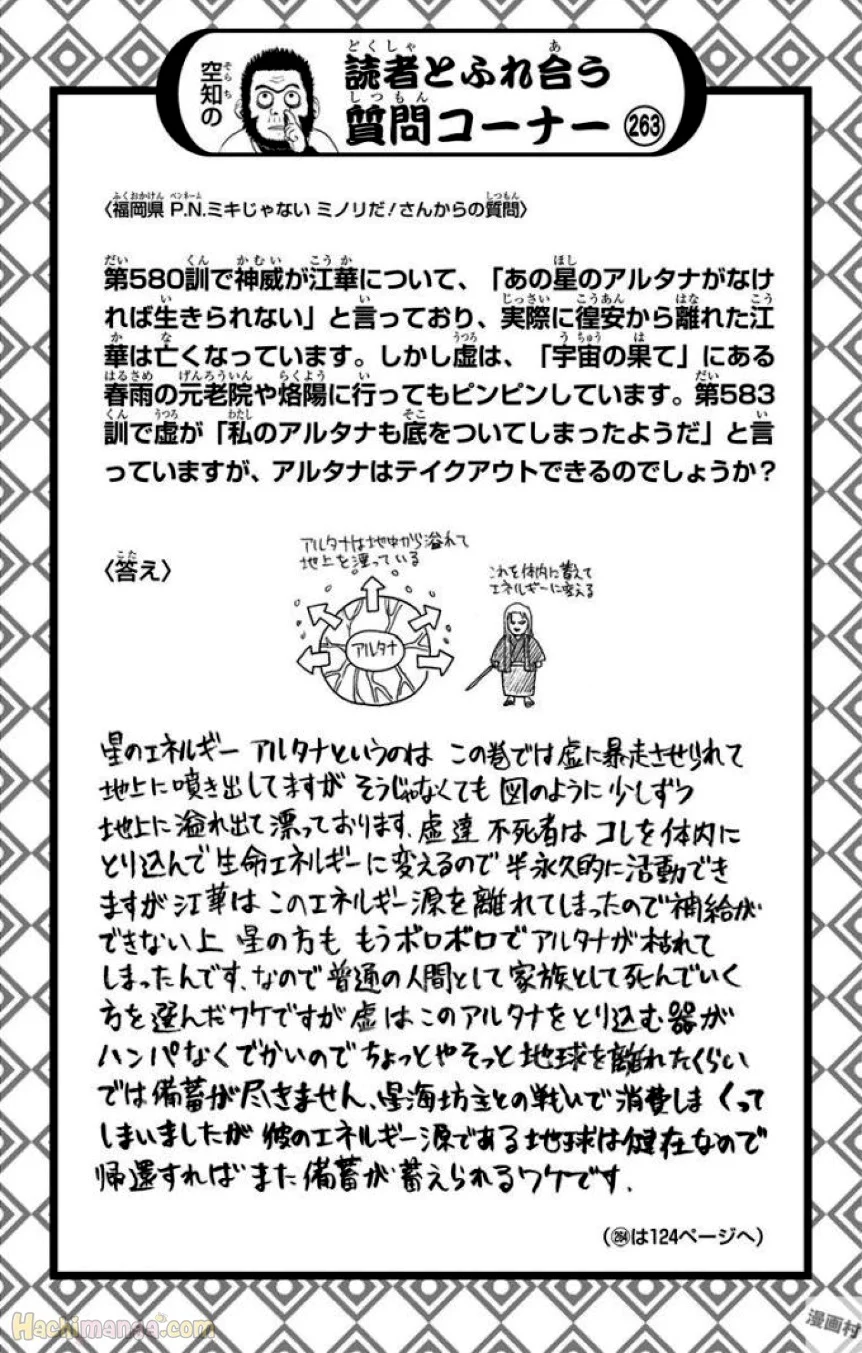 空知の
読者とふれ合う
質問コーナー 263
〈福岡県 P.N.ミキじゃない ミノリだ！さんからの質問〉
第580訓で神威が江華について、「あの星のアルタナがなけ
れば生きられない」と言っており、実際に徨安から離れた江
華は亡くなっています。しかし虚は、「宇宙の果て」にある
春雨の元老院や烙陽に行ってもピンピンしています。第583
訓で虚が「私のアルタナも底をついてしまったようだ」と言
っていますが、アルタナはテイクアウトできるのでしょうか？
〈答え〉
アルタナは地中から溢れて
地上を漂っている
これを体内に蓄えて
エネルギーに変える
アルタナ
星のエネルギー アルタナというのは この巻では虚に暴走させられて
地上に噴き出してますが そうじゃなくても 図のように少しずつ
地上に溢れ出て漂っております。虚達 不死者は コレを体内に
とり込んで生命エネルギーに変えるので半永久的に活動でき
ますが江華は このエネルギー源を離れてしまったので補給が
できない上 星の方も もうボロボロでアルタナが枯れて
しまったんです。なので普通の人間として家族として死んでいく
方を選んだワケですが虚はこのアルタナをとり込む器が
ハンパなくでかいのでちょっとやそっと地球を離れたくらい
では備蓄が尽きません、星海坊主との戦いで消費しまくって
しまいましたが 彼のエネルギー源である地球は健在なので
帰還すればまた備蓄が蓄えられるワケです.
（264は124ページへ）
Hachimanga.com
漫画村